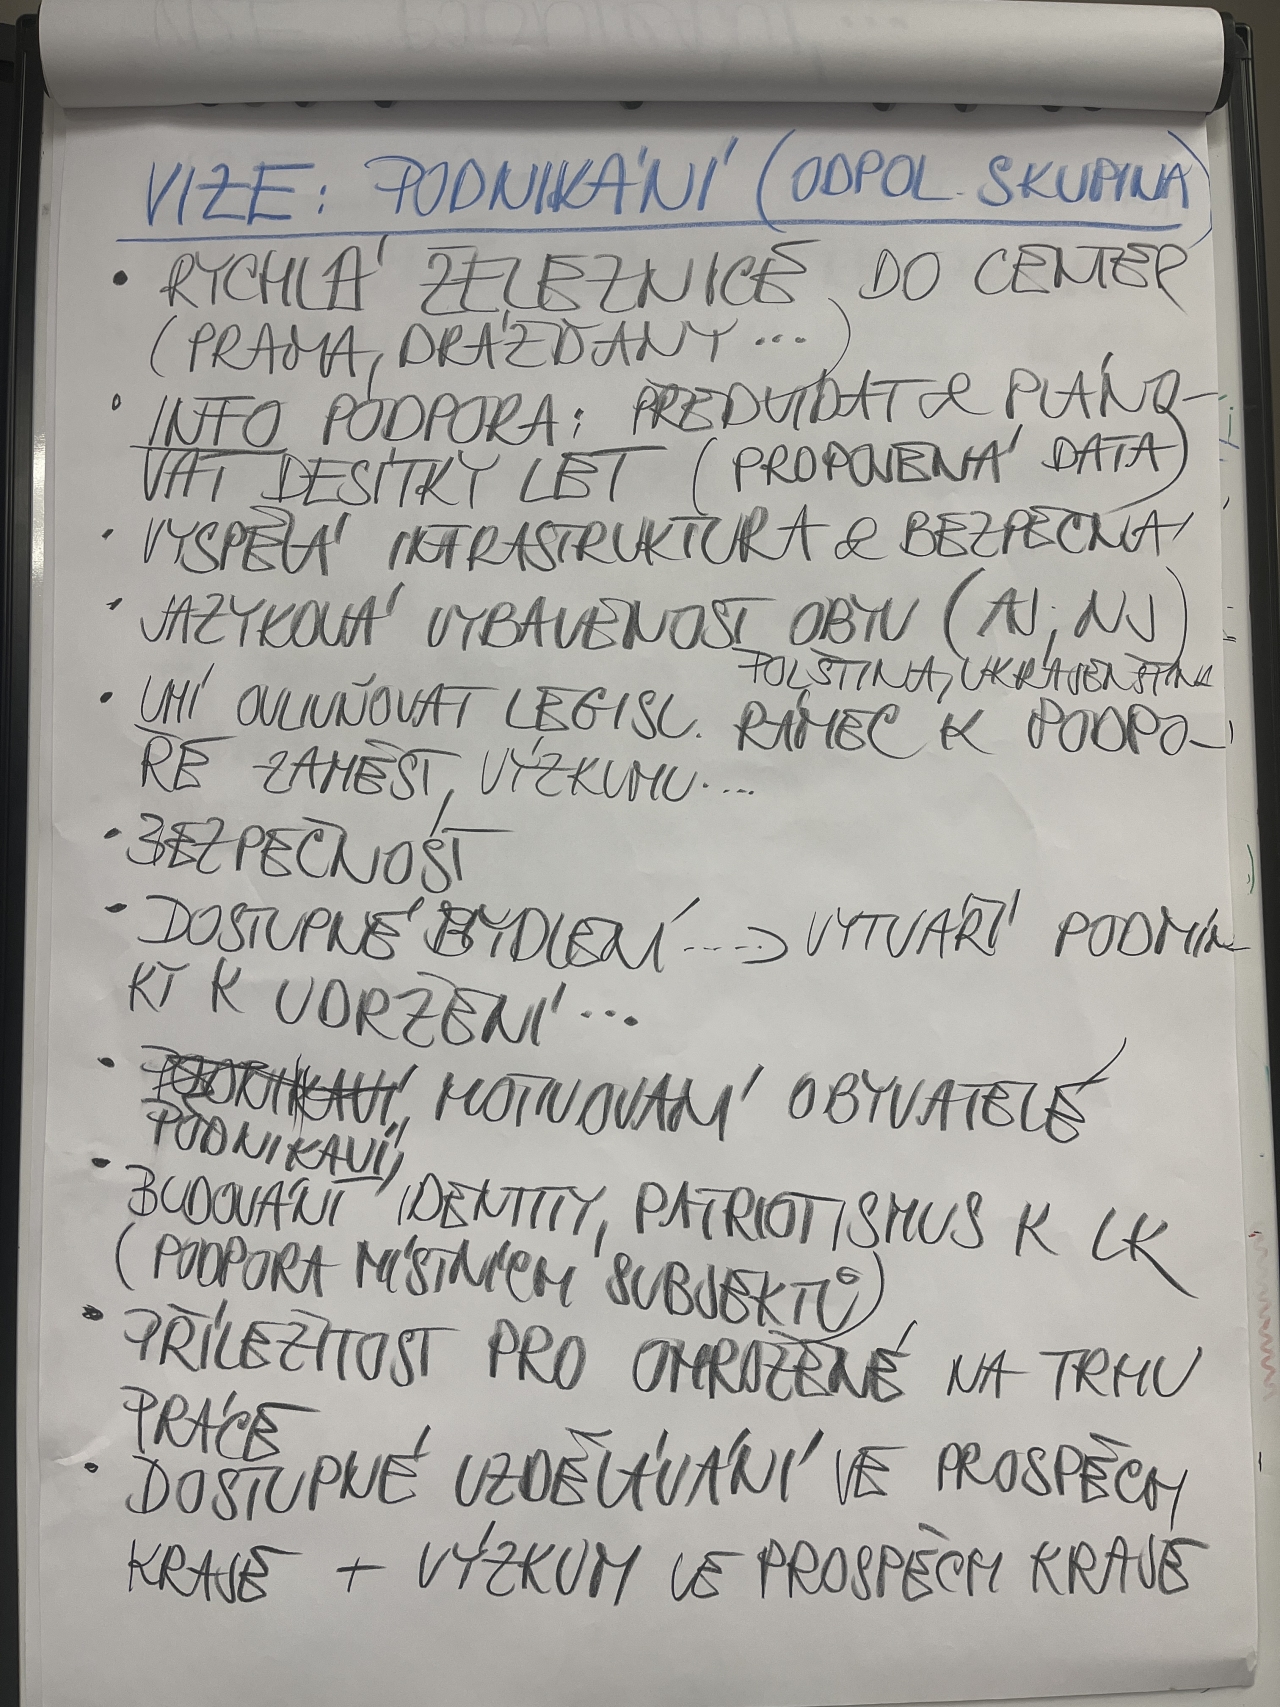 VIZE: PODNIKÁNÍ (ODPOL. SKUPINA)
• RYCHLÁ ŽELEZNICE DO CENTER
(PRAHA, DRÁŽĎANY ...)
• INFO PODPORA: PŘEDVÍDAT & PLÁNO-
VAT DESÍTKY LET (PROPOJENÁ DATA)
• VYSPĚLÁ INFRASTRUKTURA & BEZPEČNÁ
• JAZYKOVÁ VYBAVENOST OBYV (AJ, NJ)
POLŠTINA, UKRAJENŠTINA
• UMÍ OVLIVŇOVAT LEGISL. RÁMEC K PODPO-
ŘE ZAMĚST, VÝZKUMU....
• BEZPEČNOST
• DOSTUPNÉ BYDLENÍ ----> VYTVÁŘÍ PODMÍN-
KY K UDRŽENÍ ...
• PODNIKAVÍ, MOTIVOVANÍ OBYVATELÉ
PODNIKAVÍ,
• BUDOVÁNÍ IDENTITY, PATRIOTISMUS K LK
(PODPORA MÍSTNÍCH SUBJEKTŮ)
• PŘÍLEŽITOST PRO OHROŽENÉ NA TRHU
PRÁCE
• DOSTUPNÉ VZDĚLÁVÁNÍ VE PROSPĚCH
KRAJE + VÝZKUM VE PROSPĚCH KRAJE